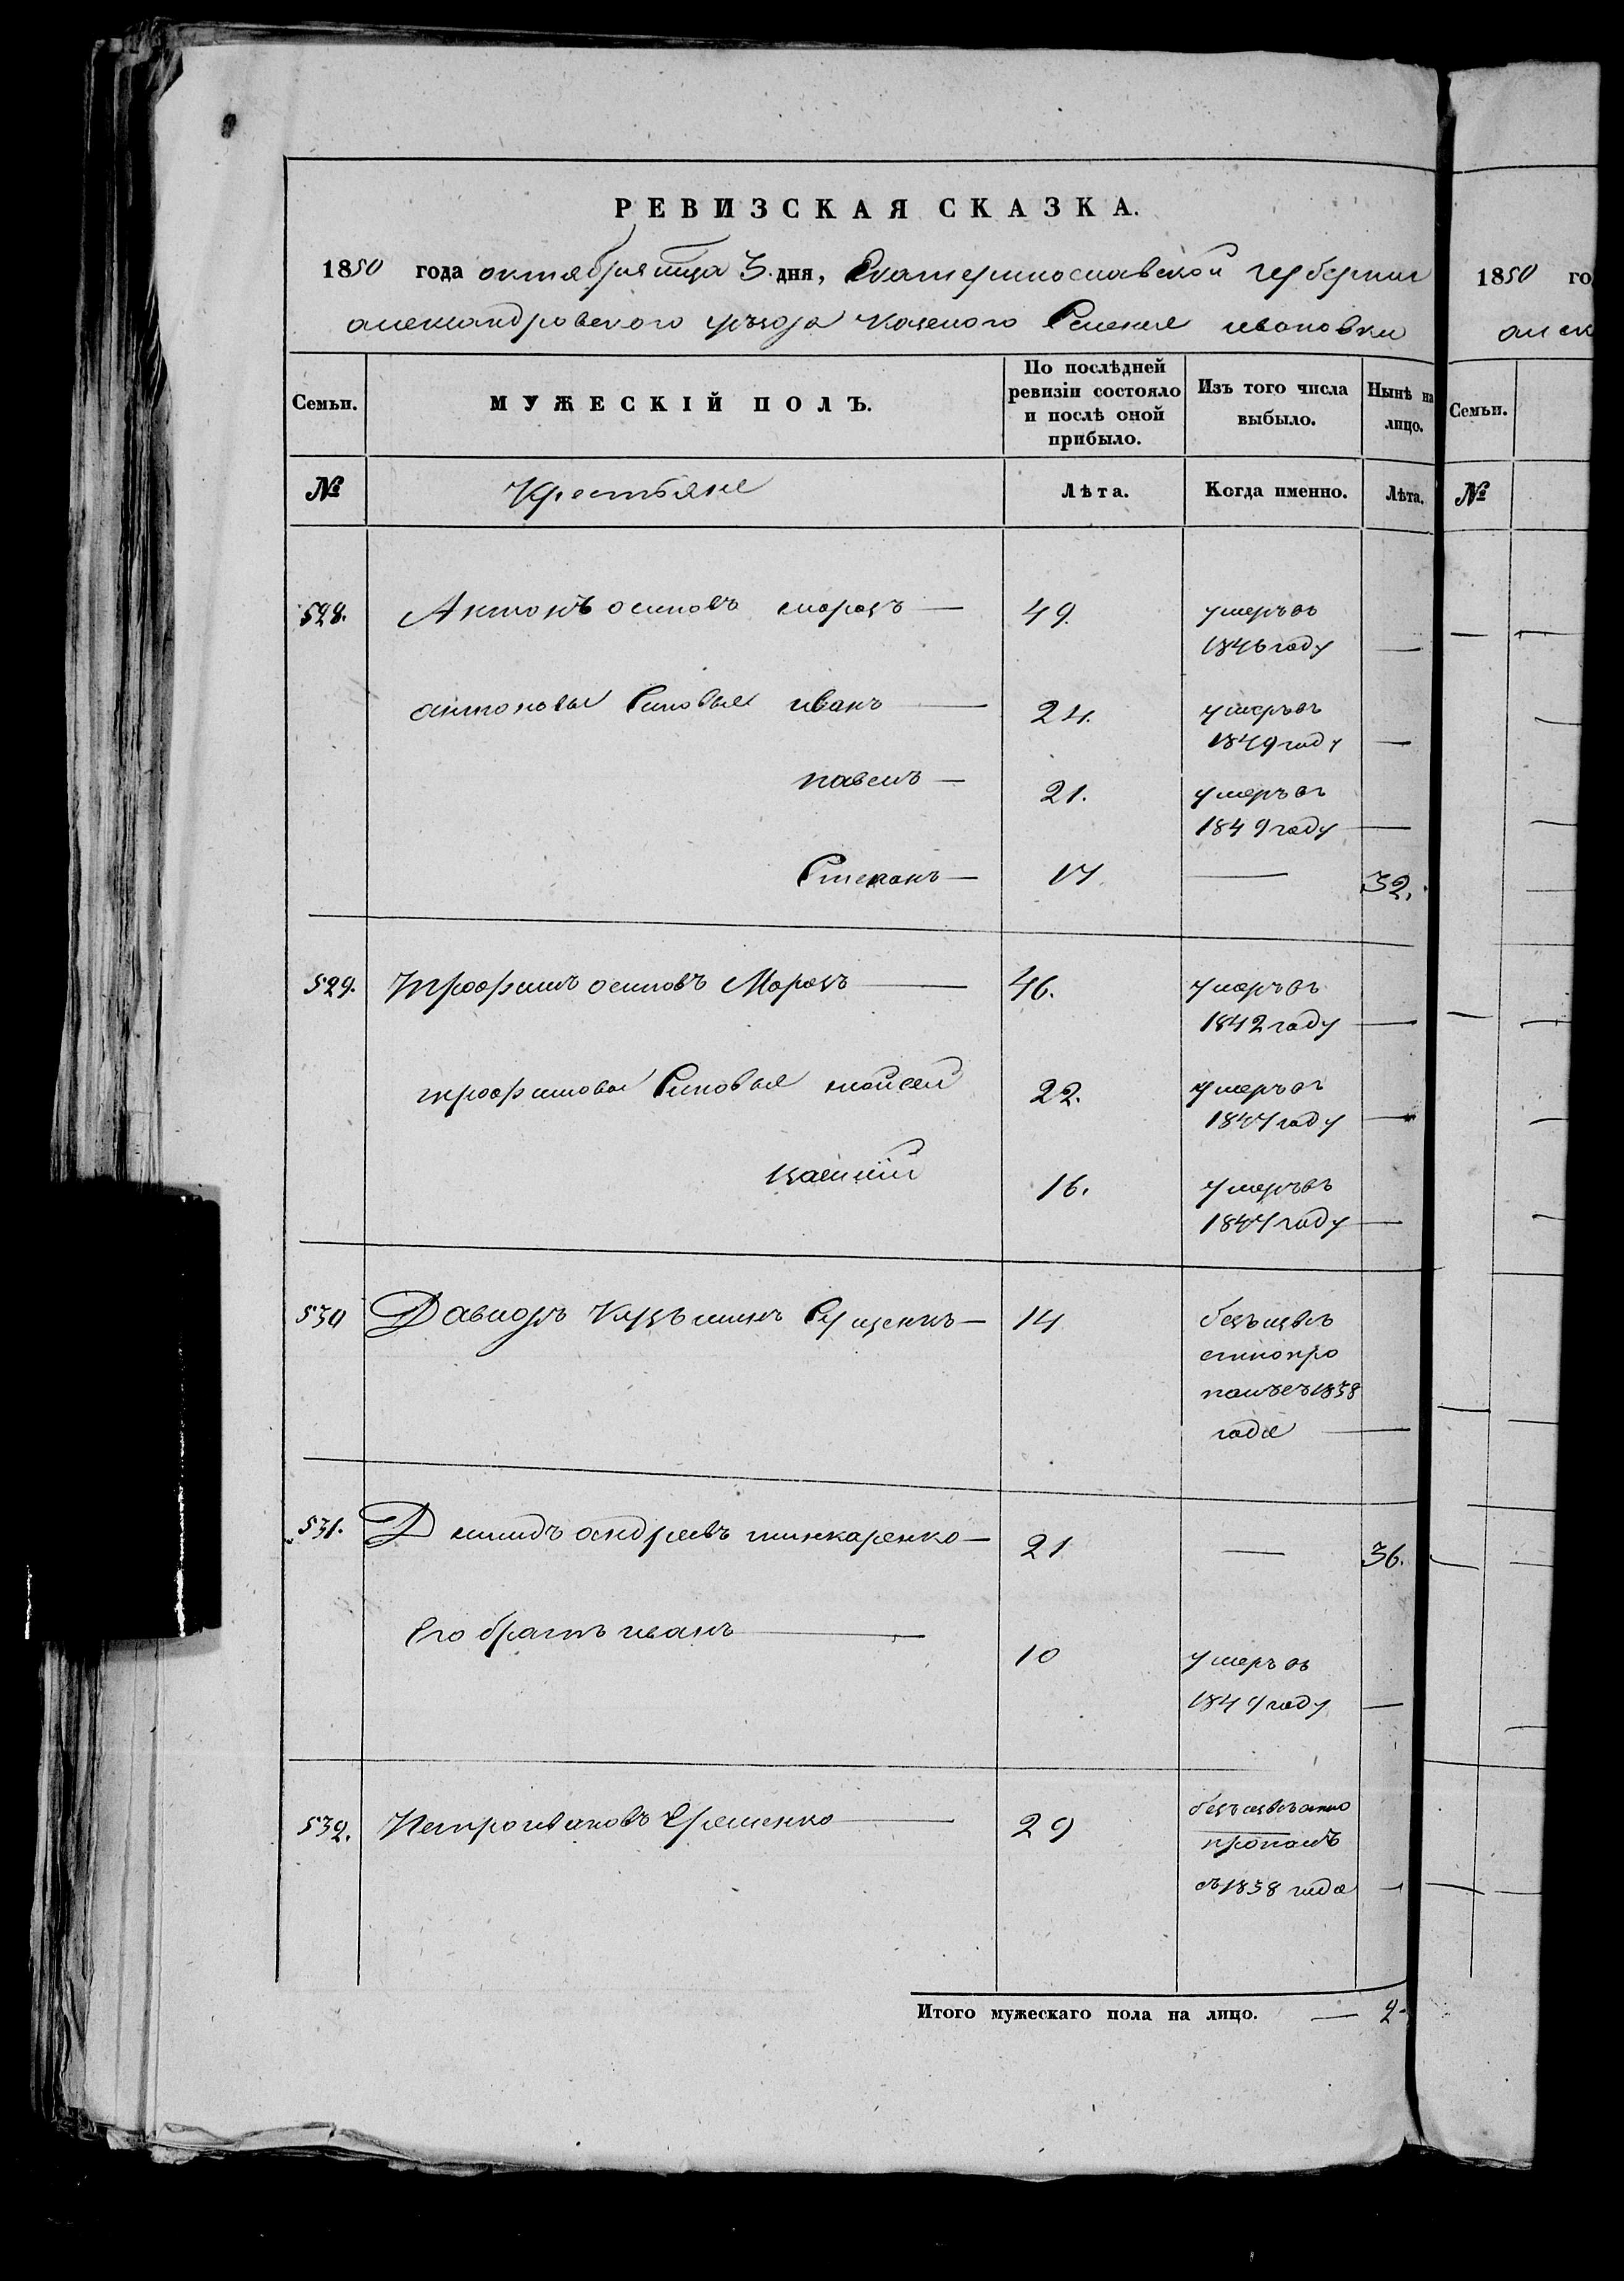 РЕВИЗСКАЯ СКАЗКА.
1850 года октября мца 3. дня, Екатеринославской губернии
александровского уезда казеного Селения ивановки
Семьи.
МУЖЕСКІЙ ПОЛЪ.
По послѣдней ревизіи состояло и послѣ оной прибыло.
Изъ того числа выбыло.
Нынѣ на лицо.
№
Крестьяне
Лѣта.
Когда именно.
Лѣта.
528. Антонъ осиповъ морозъ — 49. умеръ въ
1846 году —
антоновы Сыновья иванъ — 24. умеръ въ
1849 году —
павелъ — 21. умеръ въ
1849 году —
Степанъ — 17. — 32.
529. Трофимъ осиповъ Морозъ — 46. умеръ въ
1842 году —
трофимовы Сыновья мойсей 22. умеръ въ
1847 году —
16. умеръ въ
1847 году —
530 Давидъ 14 безъизвѣ
стно про
палъ съ 1838
года —
531. Демидъ андреевъ шинкаренко — 21 — 36.
Его братъ иванъ — 10 умеръ въ
году —
532. Петро ивановъ — 29 безъизвѣстно
пропалъ
съ 1838 года —
Итого мужескаго пола на лицо. — 2.
1850 го
алек
Семьи.
№